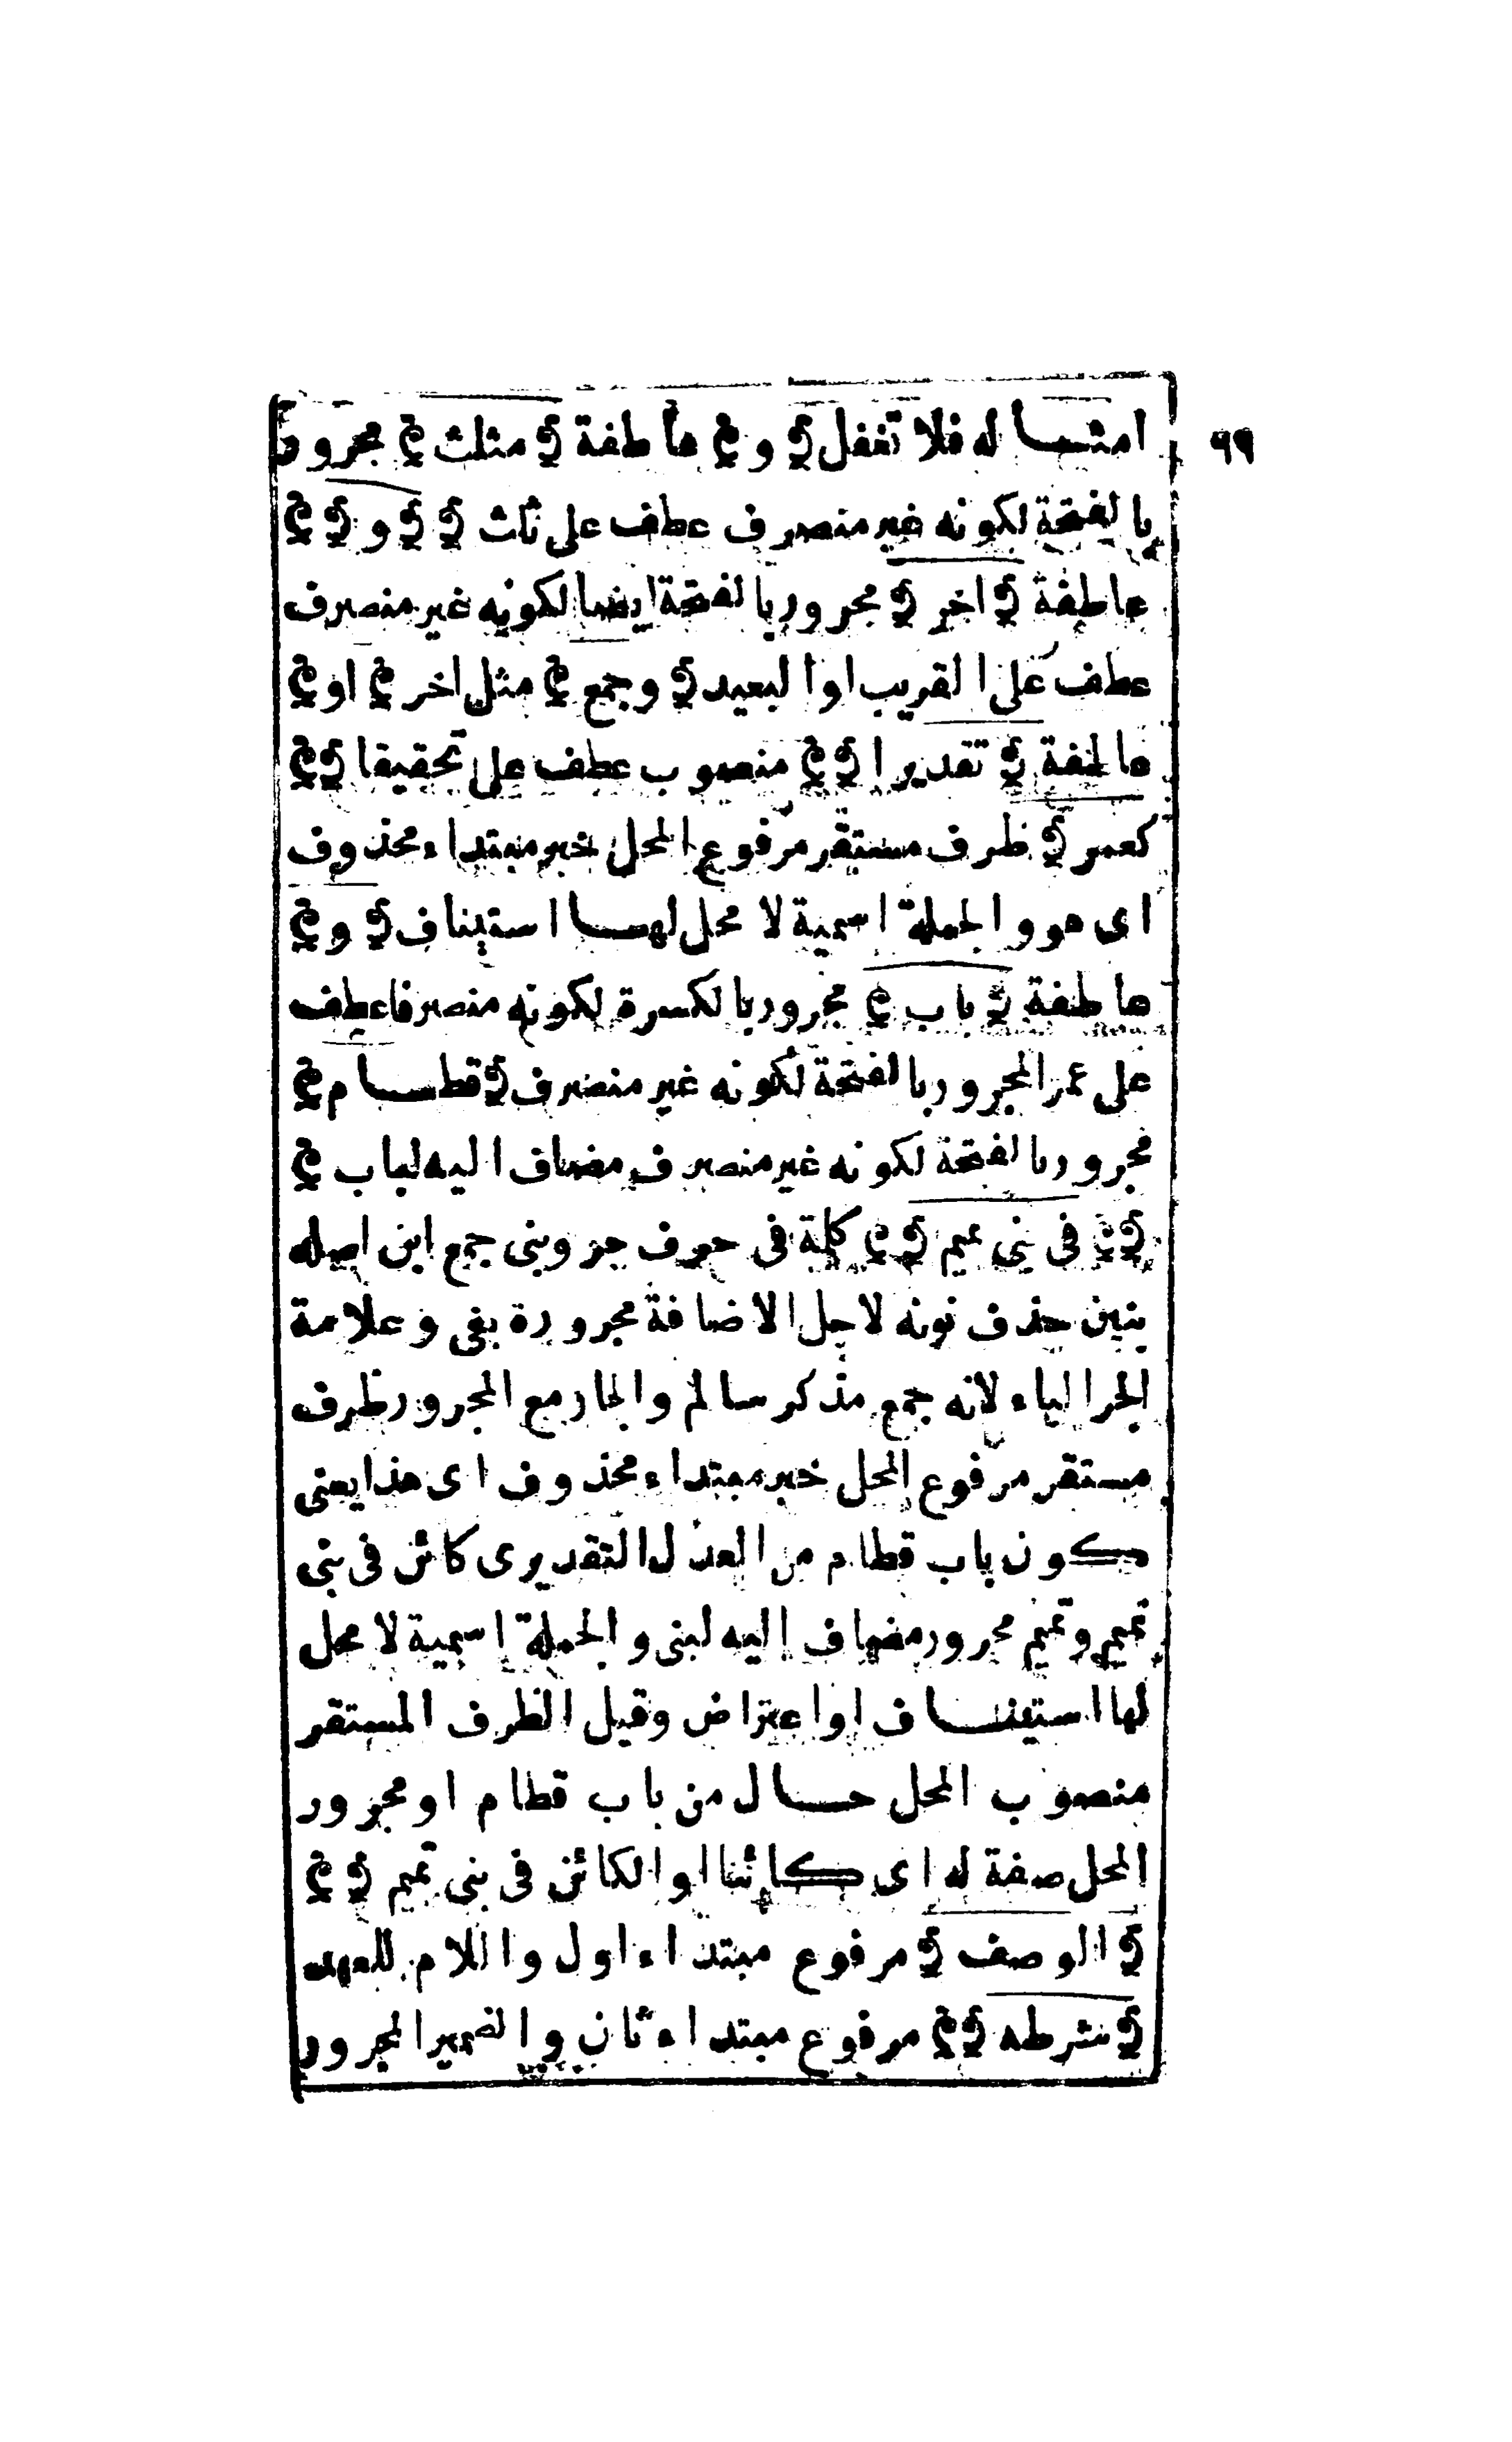 ٩٩
امثاله فلا تغفل ﴿ و ﴾ عاطفة ﴿ مثلث ﴾ مجرور
بالفتحة لكونه غير منصرف عطف على ثلث ﴿ و ﴾
عاطفة ﴿ اخر ﴾ مجرور بالفتحة ايضا لكونه غير منصرف
عطف على القريب او البعيد ﴿ وجمع ﴾ مثل اخر ﴿ او ﴾
عاطفة ﴿ تقديرا ﴾ منصوب عطف على تحقيقا ﴿
كعمر ﴾ ظرف مستقر مرفوع المحل خبر مبتداء محذوف
اى هو والجملة اسمية لا محل لها استيناف ﴿ و ﴾
عاطفة ﴿ باب ﴾ مجرور بالكسرة لكونه منصرفا عطف
على عمر المجرور بالفتحة لكونه غير منصرف ﴿ قطام ﴾
مجرور بالفتحة لكونه غير منصرف مضاف اليه لباب
﴿ فى بنى تميم ﴾ كلمة فى حرف جر وبنى جمع ابن اصله
بنين حذف نونه لاجل الاضافة مجرورة بفى وعلامة
الجر الياء لانه جمع مذكر سالم والجار مع المجرور ظرف
مستقر مرفوع المحل خبر مبتداء محذوف اى هذا يعنى
كون باب قطام من العدل التقديرى كائن فى بنى
تميم وتميم مجرور مضاف اليه لبنى والجملة اسمية لا محل
لها استيناف او اعتراض وقيل الظرف المستقر
منصوب المحل حال من باب قطام او مجرور
المحل صفة له اى كائنا او الكائن فى بنى تميم
﴿ الوصف ﴾ مرفوع مبتداء اول واللام للعهد
﴿ شرطه ﴾ مرفوع مبتداء ثان والضمير المجرور